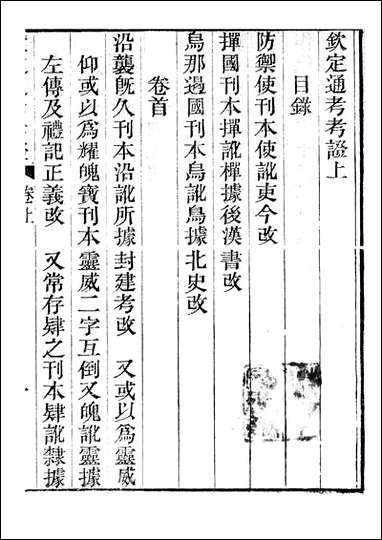 欽定通考考證上
目錄
防禦使刊本使訛吏今改
撣國刊本撣訛樿據後漢書改
烏那遏國刊本烏訛鳥據北史改
卷首
沿襲既久刊本沿訛所據封建考改 又或以爲靈威
仰或以爲耀魄寶刊本靈威二字互倒又魄訛靈據
左傳及禮記正義改 又常存肆之刊本肆訛隸據
卷上